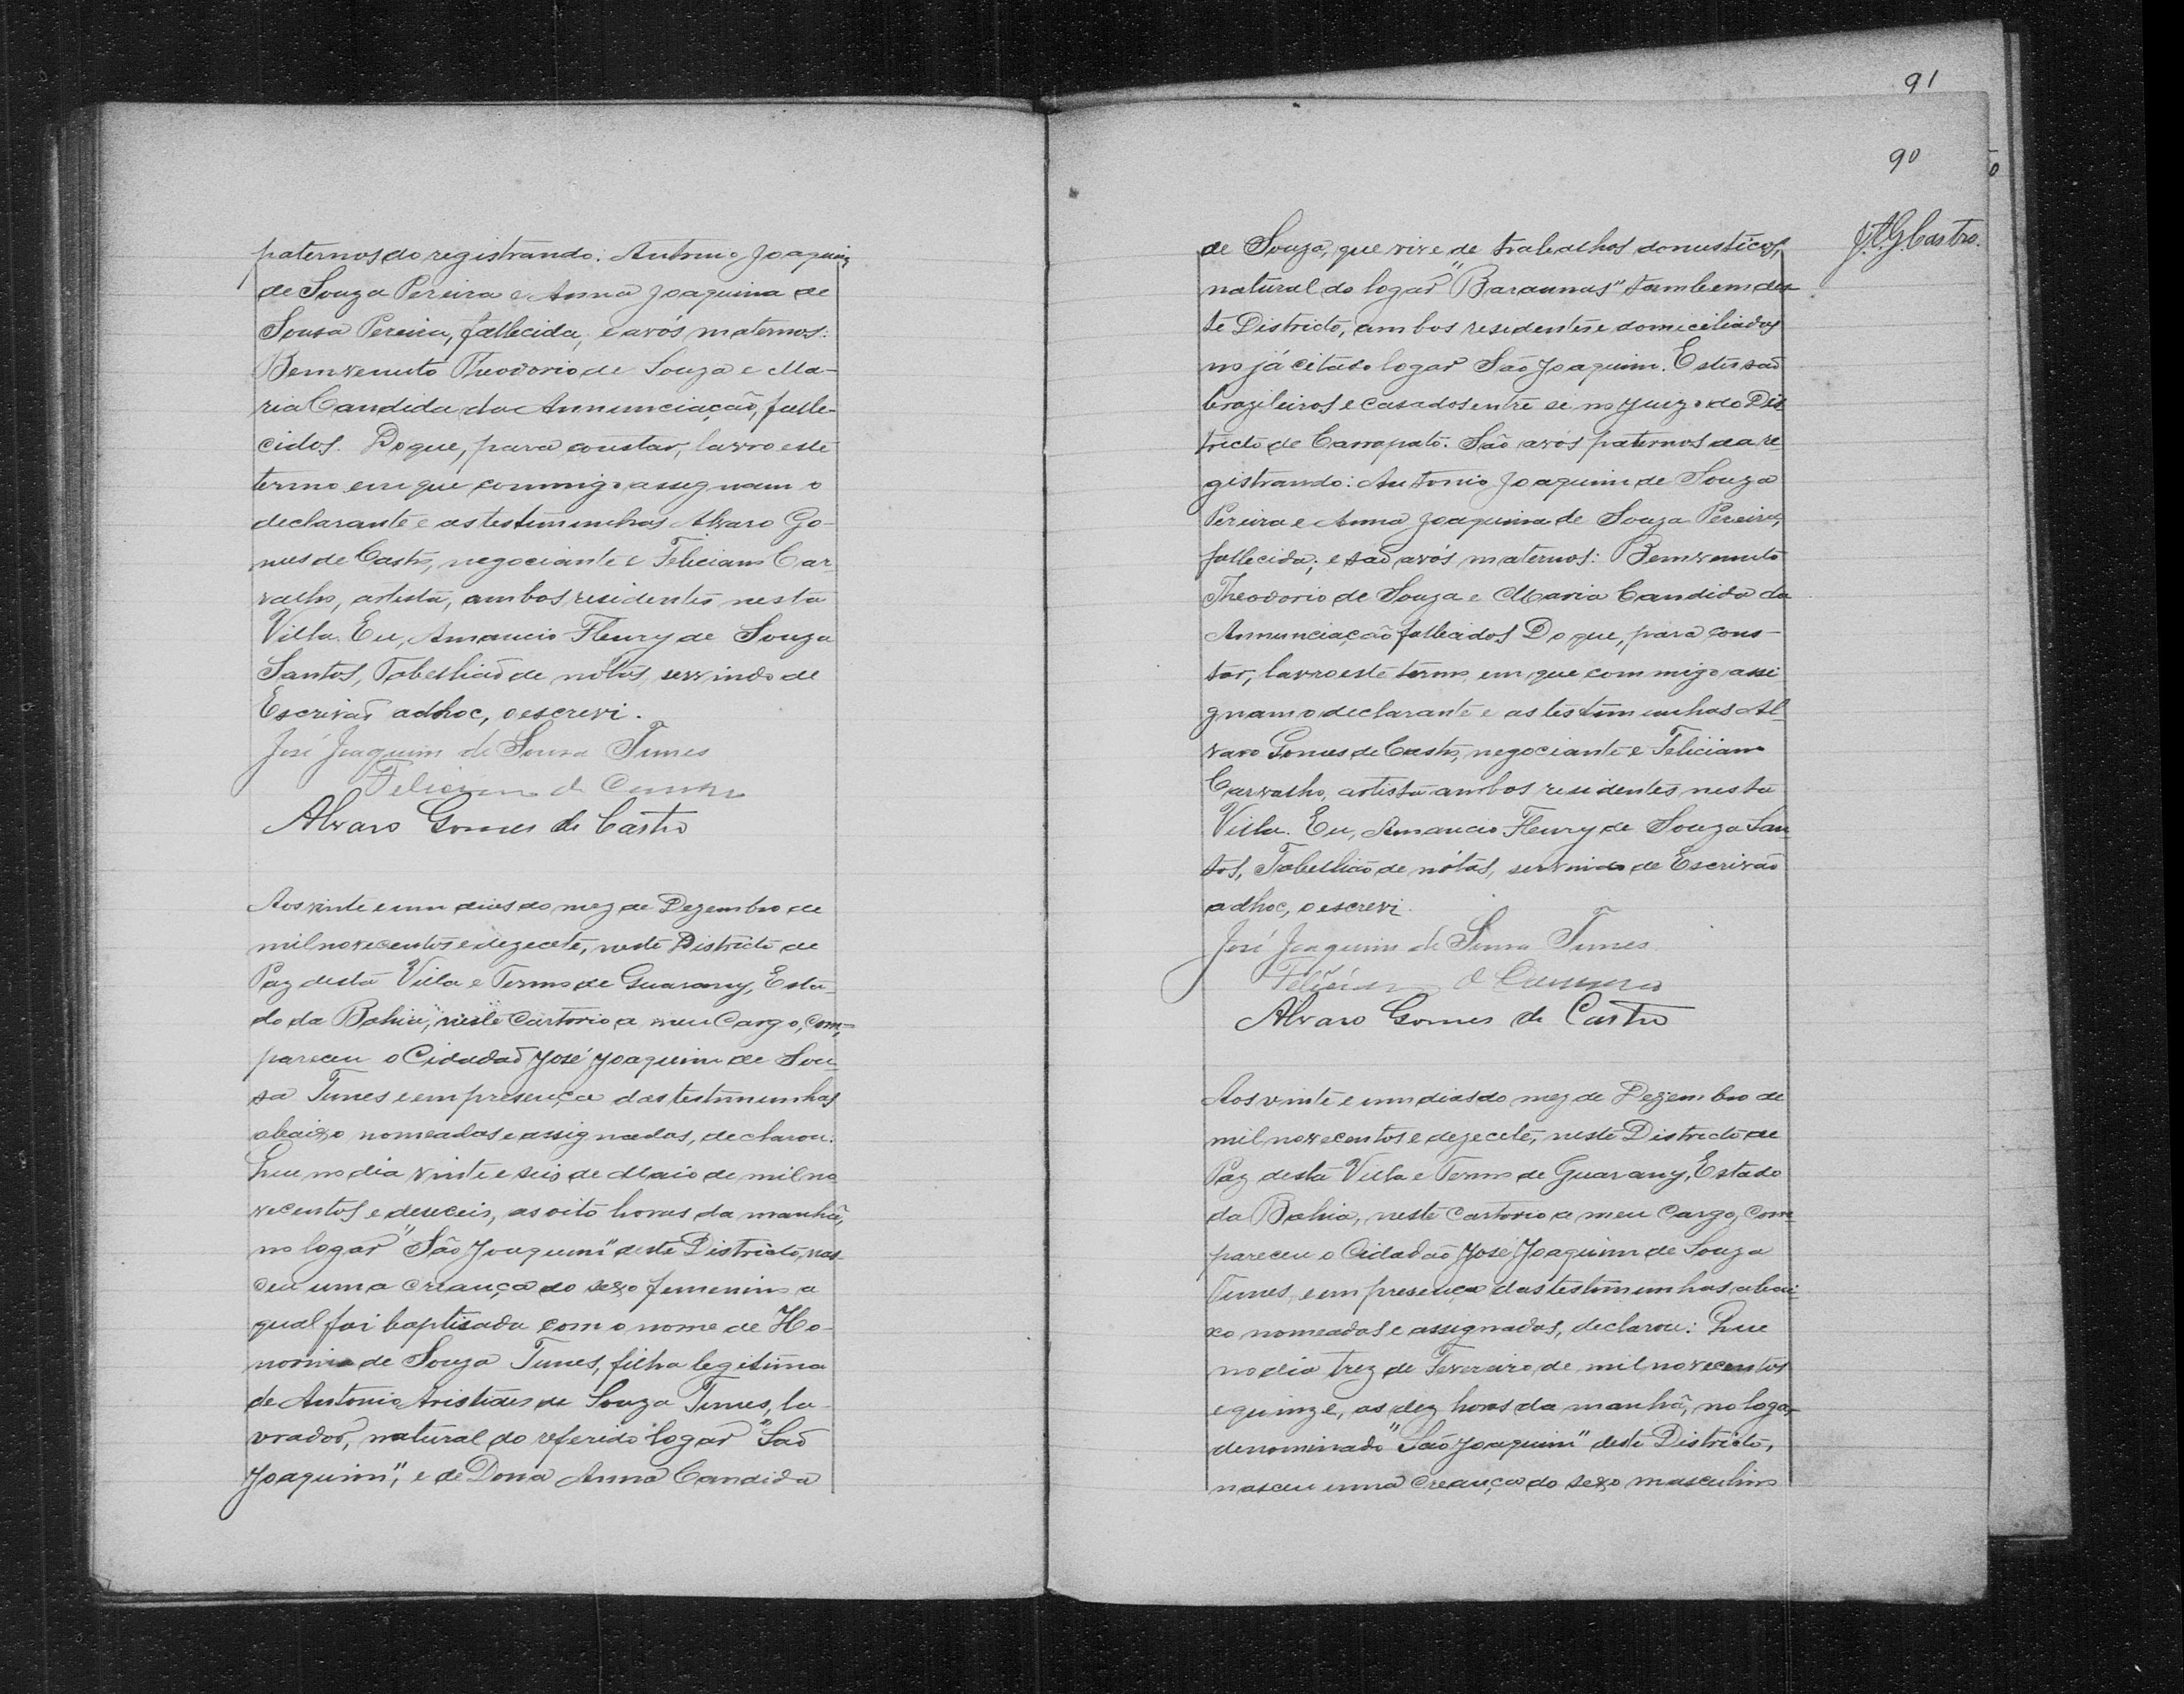 paternos do registrando: Antonio Joaquim
de Souza Pereira e Anna Joaquina de
Sousa Pereira, fallecida, e avós maternos:
Bemvenuto Theodorio de Souza e Ma-
ria Candida da Annunciação, falle-
cidos. Do que, para constar, lavro este
termo em que commigo assignam o
declarante e as testimunhas Alvaro Go-
mes de Castro, negociante e Feliciano Car-
valho, artista, ambos residentes nesta
Villa. Eu, Amancio Fleury de Souza
Santos, Tabellião de nótas, servindo de
Escrivão adhoc, o escrevi.
José Joaquim de Sousa Tunes
Alvaro Gomes de Castro
Aos vinte e um dias do mez de Dezembro de
mil novecentos e dezecete, neste Districto de
Paz desta Villa e Termo de Guarany, Esta-
do da Bahia, neste Cartorio a meu Cargo, com-
pareceu o Cidadão José Joaquim de Sou-
sa Tunes e em presença das testimunhas
abaixo nomeadas e assignadas, declarou:
Que no dia vinte e seis de Maio de mil no-
vecentos e deseceis, as oito horas da manhã,
no logar "São Joaquim" deste Districto, nas-
ceu uma creança do sexo feminino a
qual foi baptisada com o nome de Ho-
norina de Souza Tunes, filha legitima
de Antonio Aristides de Souza Tunes, la-
vrador, natural do referido logar "São
Joaquim", e de Dona Anna Candida
91
90
J. A. G. Castro.
de Souza, que vive de trabalhos domesticos,
natural do logar "Baraunas" tambem des-
te Districto, ambos residentes e domiciliados
no já citado logar São Joaquim. Estes são
brazileiros e casados entre si no Juizo do Dis-
tricto de Carrapato. São avós paternos da re-
gistrando: Antonio Joaquim de Souza
Pereira e Anna Joaquina de Souza Pereira,
fallecida; e são avós maternos: Bemvenuto
Theodorio de Souza e Maria Candida da
Annunciação fallecidos Do que, para cons-
tar, lavro este termo em que commigo assi
gnam o declarante e as testimunhas Al-
varo Gomes de Castro, negociante e Feliciano
Carvalho, artista ambos residentes nesta
Villa. Eu, Amancio Fleury de Souza San-
tos, Tabellião de nótas, servindo de Escrivão
adhoc, o escrevi.
José Joaquim de Sousa Tunes
Alvaro Gomes de Castro
Aos vinte e um dias do mez de Dezembro de
mil novecentos e dezecete, neste Districto de
Paz desta Villa e Termo de Guarany, Estado
da Bahia, neste Cartorio a meu Cargo, com-
pareceu o Cidadão José Joaquim de Souza
Tunes, e em presença das testimunhas abai-
xo nomeadas e assignadas, declarou: Que
no dia trez de Fevereiro de mil novecentos
e quinze, as dez horas da manhã, no logar
denominado "São Joaquim" deste Districto,
nasceu uma creança do sexo masculino